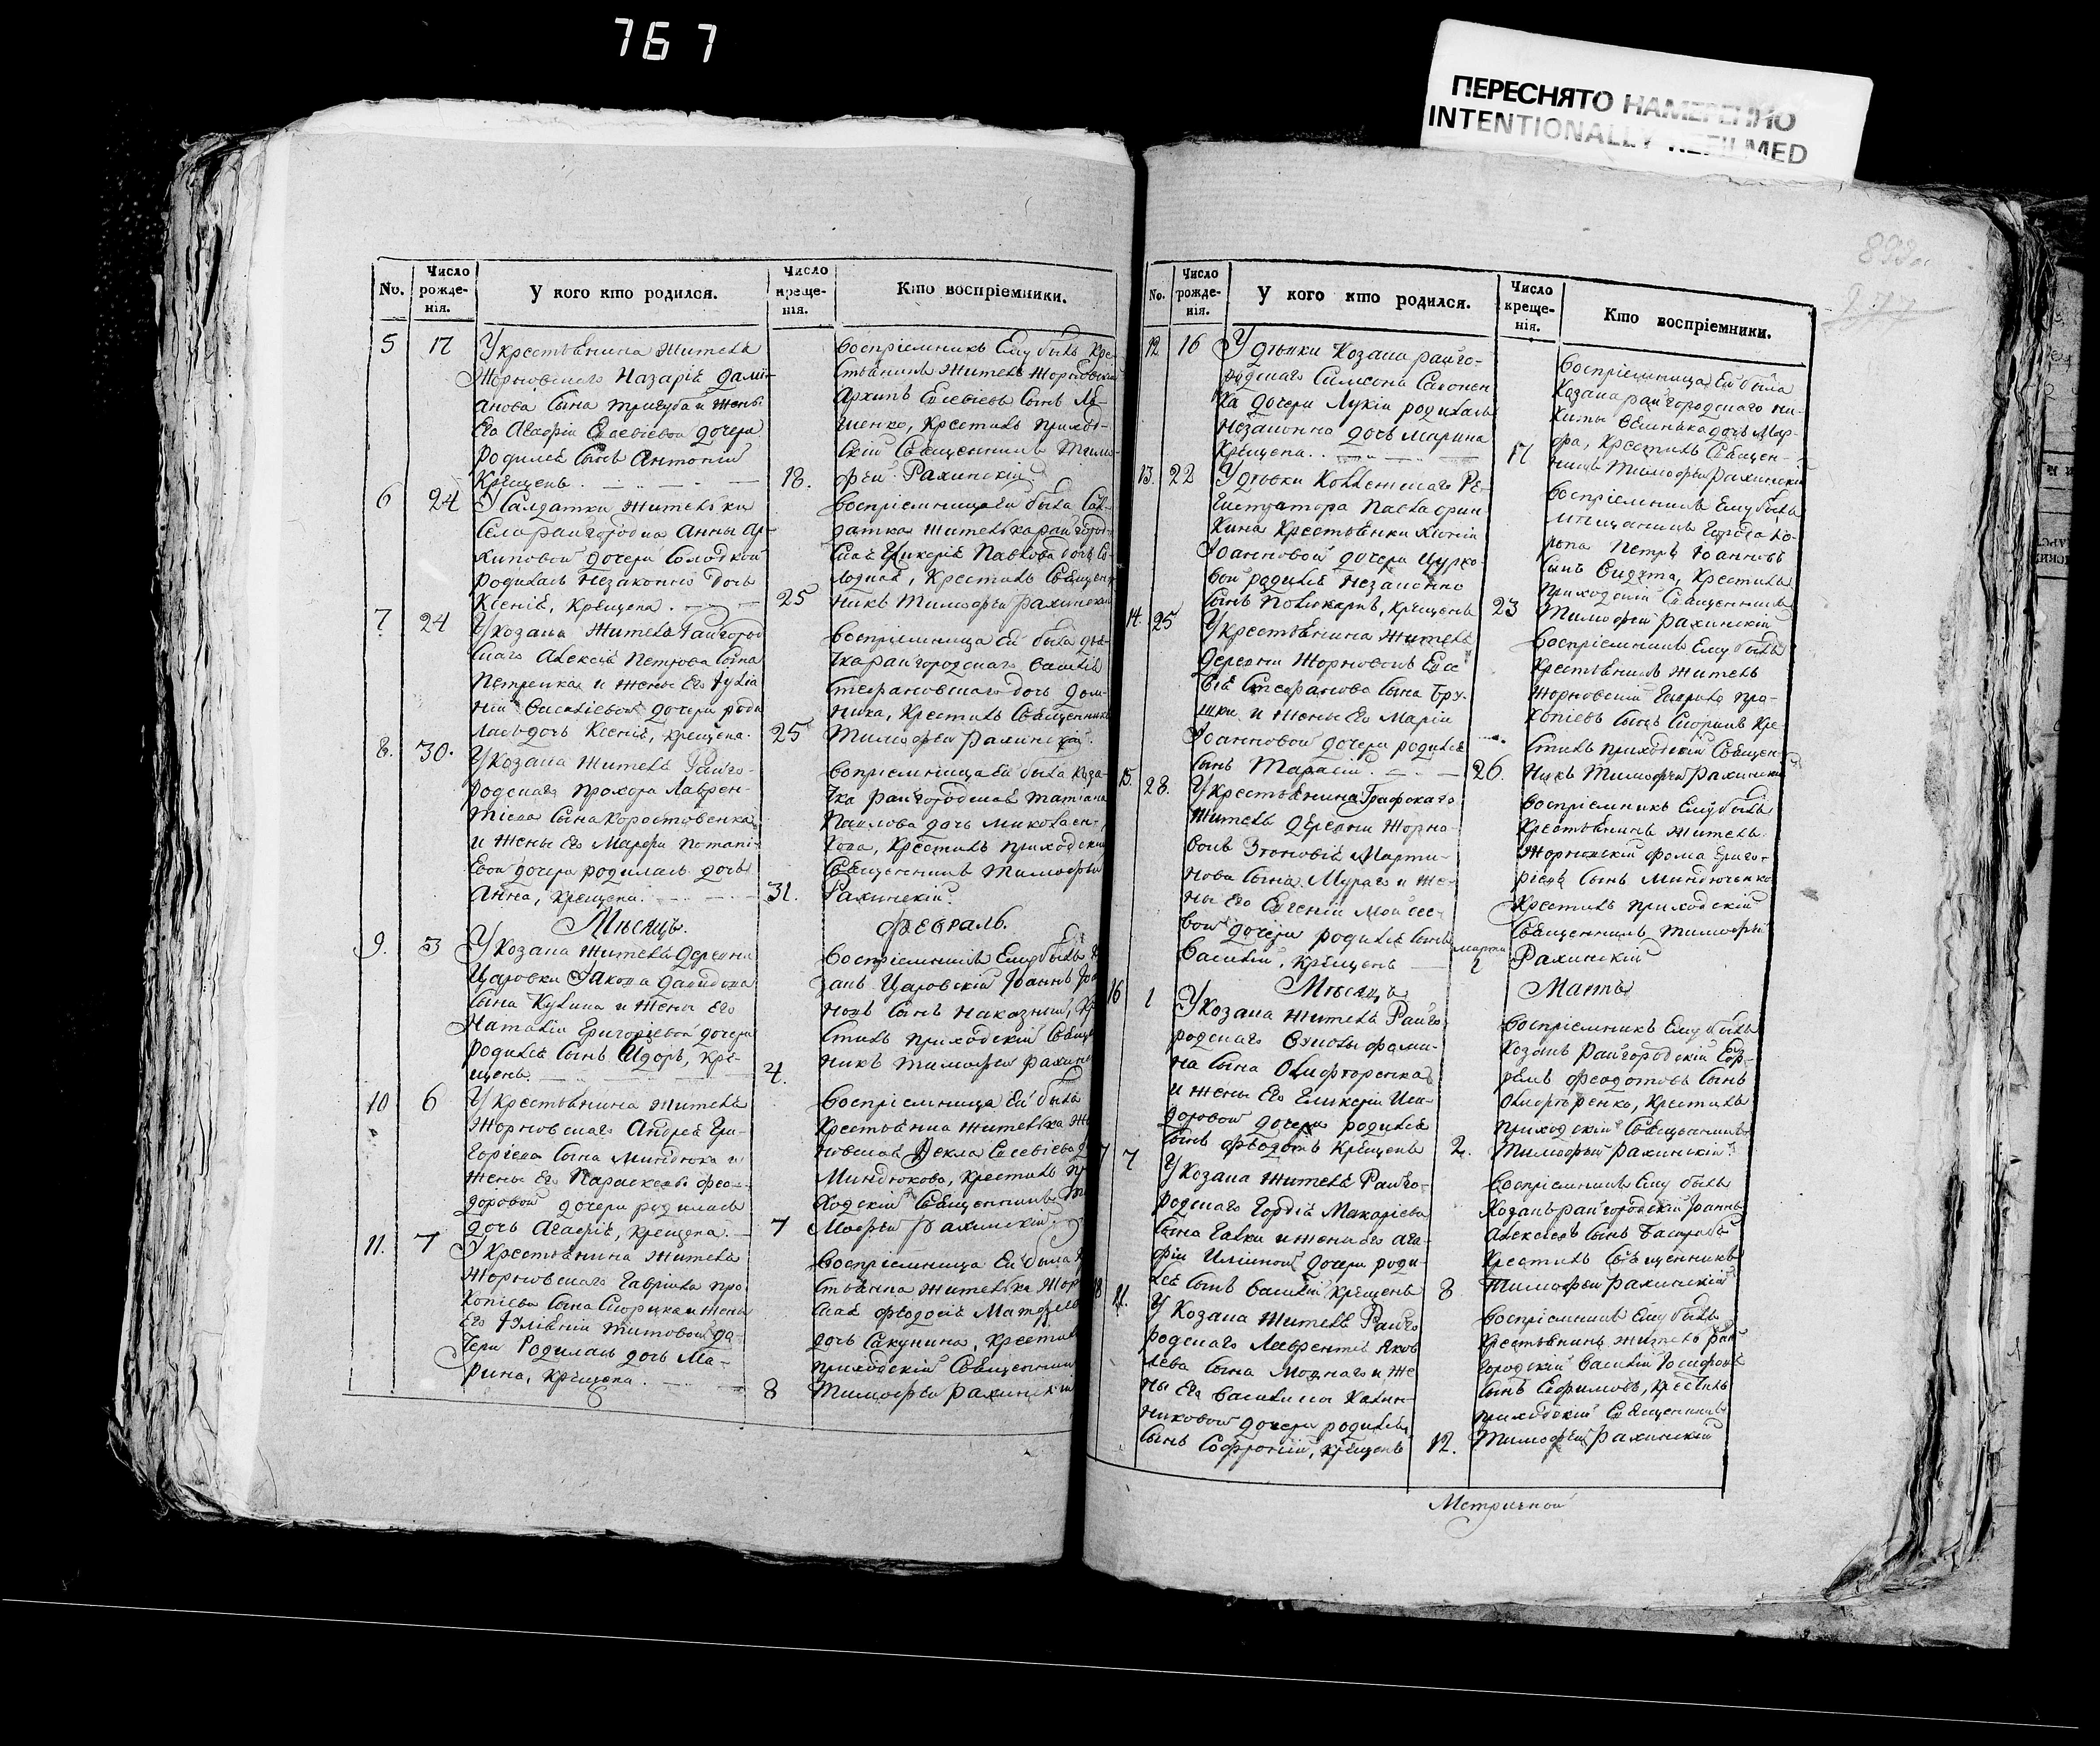 767
ПЕРЕСНЯТО НАМЕРЕННО
INTENTIONALLY REFILMED
No.
Число рожде-нія.
У кого кто родился.
Число креще-нія.
Кто воспріемники.
5 17
Укрестьянина жителя
Жорновскаго Назарія Дамі-
анова сына Тригуба и жены
Его Агафіи Евсевіевой дочери
родился сынъ Антоній
Крещенъ. 18.
воспріемникъ Ему былъ Кре-
стьянинъ житель Жорновскій
Архипъ Евсевіевъ сынъ
шенко, Крестилъ приход-
скій Священникъ Тимо-
фей Рахинскій
6 24
У Салдатки жительки
Села Райгородка Анны Ар-
хиповой дочери Солодкой
родилась незаконно дочь
Ксенія, Крещена. 25
воспріемницей была Сал-
датка жителька райгород-
ская Гликерія Павлова дочь Со-
лодкая, Крестилъ Священ-
никъ Тимофей Рахинскій
7 24
Укозака жителя Райгород
скаго Алексія Петрова сына
Петренка и жены Его Іуліа
ніи дочери роди
лась дочь Ксенія, крещена. 25
воспріемница Ей была дья-
чка райгородскаго Василія
Стефановскаго дочь Дом-
ника, Крестилъ Священникъ
Тимофей Рахинскій.
8. 30.
Укозака жителя Райго-
родскаго Прохора Лаврен-
тіева сына Коростовенка
и жены Его Марфы Потапі-
евой дочери родилась дочь
Анна, Крещена. 31.
воспріемница Ей была коза-
чка райгородская Татіана
Павлова дочь Миколаен-
кова, Крестилъ приходскій
Священникъ Тимофей
Рахинскій.
Мѣсяцъ. Февраль.
9. 3
Укозака жителя деревни
Царовки Іакова Давидова
сына Кулика и жены Его
Наталіи Григоріевой дочери
родился сынъ Сидоръ, Кре-
щенъ. 4.
Воспріемникъ Ему былъ
закъ Царовскій Іоаннъ
новъ сынъ Наказный,
стилъ приходскій
никъ Тимофей
10 6
Укрестьянина жителя
Жорновскаго Андрея Гри-
горіева сына Миндюка и
жены Его Параскевы Фео-
доровой дочери родилась
дочь Агафія, Крещена. 7
воспріемница Ей была
Крестьянка жителька
новская Фекла Евсевіева
Миндюкова, Крестилъ
ходскій Священникъ
мофей Рахинскій.
11. 7
Укрестьянина жителя
Жорновскаго Гавріила Про
копіева сына Скорика и жены
Его Іуліаніи Титовой до-
чери Родилась дочь Ма-
рина, Крещена. 8
воспріемница Ей была
стьянка жителька
ская Феодосія
дочь Сакунина, Крестилъ
приходскій Священникъ
Тимофей Рахинскій
No.
Число рожде-нія.
У кого кто родился.
Число креще-нія.
Кто воспріемники.
12 16
У дѣвки Козака райго-
родскаго Симеона Сахонен
ка дочери Лукіи родилась
незаконно дочь Марина
Крещена. 17
воспріемница Ей была
Козака райгородскаго Ни-
киты дочь Мар-
фа, Крестилъ Священ-
никъ Тимофей Рахинскій
13. 22
У дѣвки Коллежскаго Ре-
гистратора
кина Крестьянки Ксеніи
Іоанновой дочери Цурко-
вой родился незаконно
сынъ Поликарпъ, крещенъ 23
воспріемникъ Ему былъ
мѣщанинъ города Ко-
Петръ Іоанновъ
сынъ Крестилъ
приходскій Священникъ
Тимофей Рахинскій
14. 25
Укрестьянина жителя
деревни Жорновокъ Евсе
вія Стефанова сына Бру-
шки и жены Его Маріи
Іоанновой дочери родился
сынъ Тарасій. 26.
воспріемникъ Ему былъ
Крестьянинъ житель
Жорновскій Гавріилъ Про-
копіевъ сынъ Скорикъ Кре-
стилъ приходскій Священ-
никъ Тимофей Рахинскій
15. 28.
У Крестьянина Графскаго
жителя деревни Жорно-
вокъ Зиновія Марти-
нова сына Мураго и же-
ны Его Евгеніи Мойсее-
вой дочери родился сынъ
Василій, Крещенъ марта 1
воспріемникъ Ему былъ
Крестьянинъ житель
Жорновскій Фома Григо-
ріевъ сынъ Миндюченко
Крестилъ приходскій
Священникъ Тимофей
Рахинскій
Мѣсяцъ Мартъ
16 1
Укозака жителя Райго
родскаго Фоми-
на сына Олифтаренка
и жены Его Гликеріи Иси-
доровой дочери родился
сынъ Феодотъ Крещенъ 2.
воспріемникъ Ему былъ
Козакъ Райгородскій Еф-
ремъ Феодотовъ сынъ
Олифтаренко, Крестилъ
приходскій Священникъ
Тимофей Рахинскій.
7
Укозака жителя Райго-
родскаго Гордія Макаріева
сына Галки и жены его Ага-
фіи Иліиной дочери роди-
лся сынъ Василій Крещенъ 8
воспріемникъ Ему былъ
Козакъ райгородскій Іоаннъ
Алексіевъ сынъ
Крестилъ Священникъ
Тимофей Рахинскій
18 11.
У Козака жителя Райго
родскаго Лаврентія Яков
лева сына Моднаго и же
ны Его Василисы Калин-
никовой дочери родился
сынъ Софроній, крещенъ 12.
воспріемникъ Ему былъ
Крестьянинъ житель рай
городскій Василій Іосифовъ
сынъ Ефимовъ, крестилъ
приходскій Священникъ
Тимофей Рахинскій
Метричной